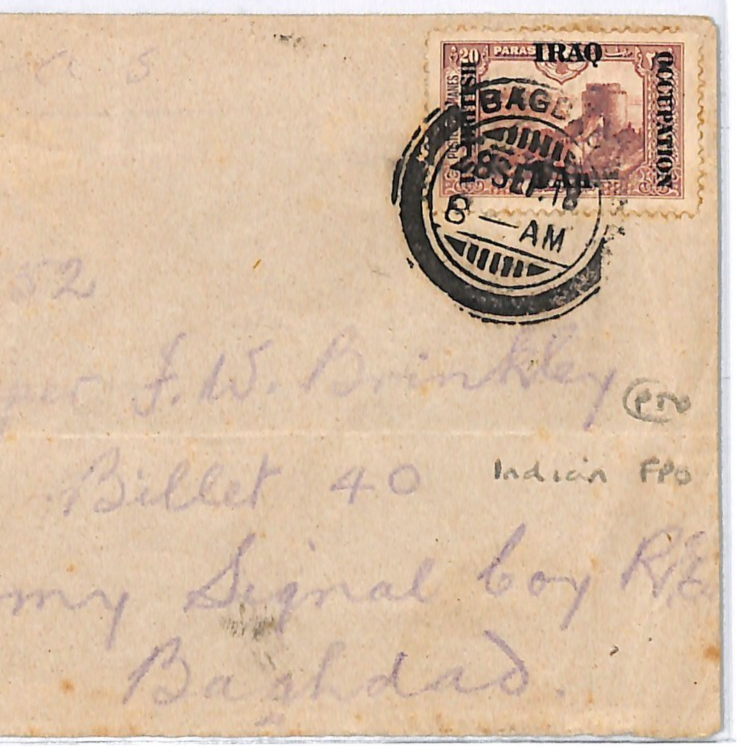 20 PARAS
IRAQ
OCCUPATION
BAGD
28 SEP. 18
8 — AM
52
per J. W. Brinkley
Billet 40
PTO
Indian FPO
my Signal Coy R.E.
Baghdad.